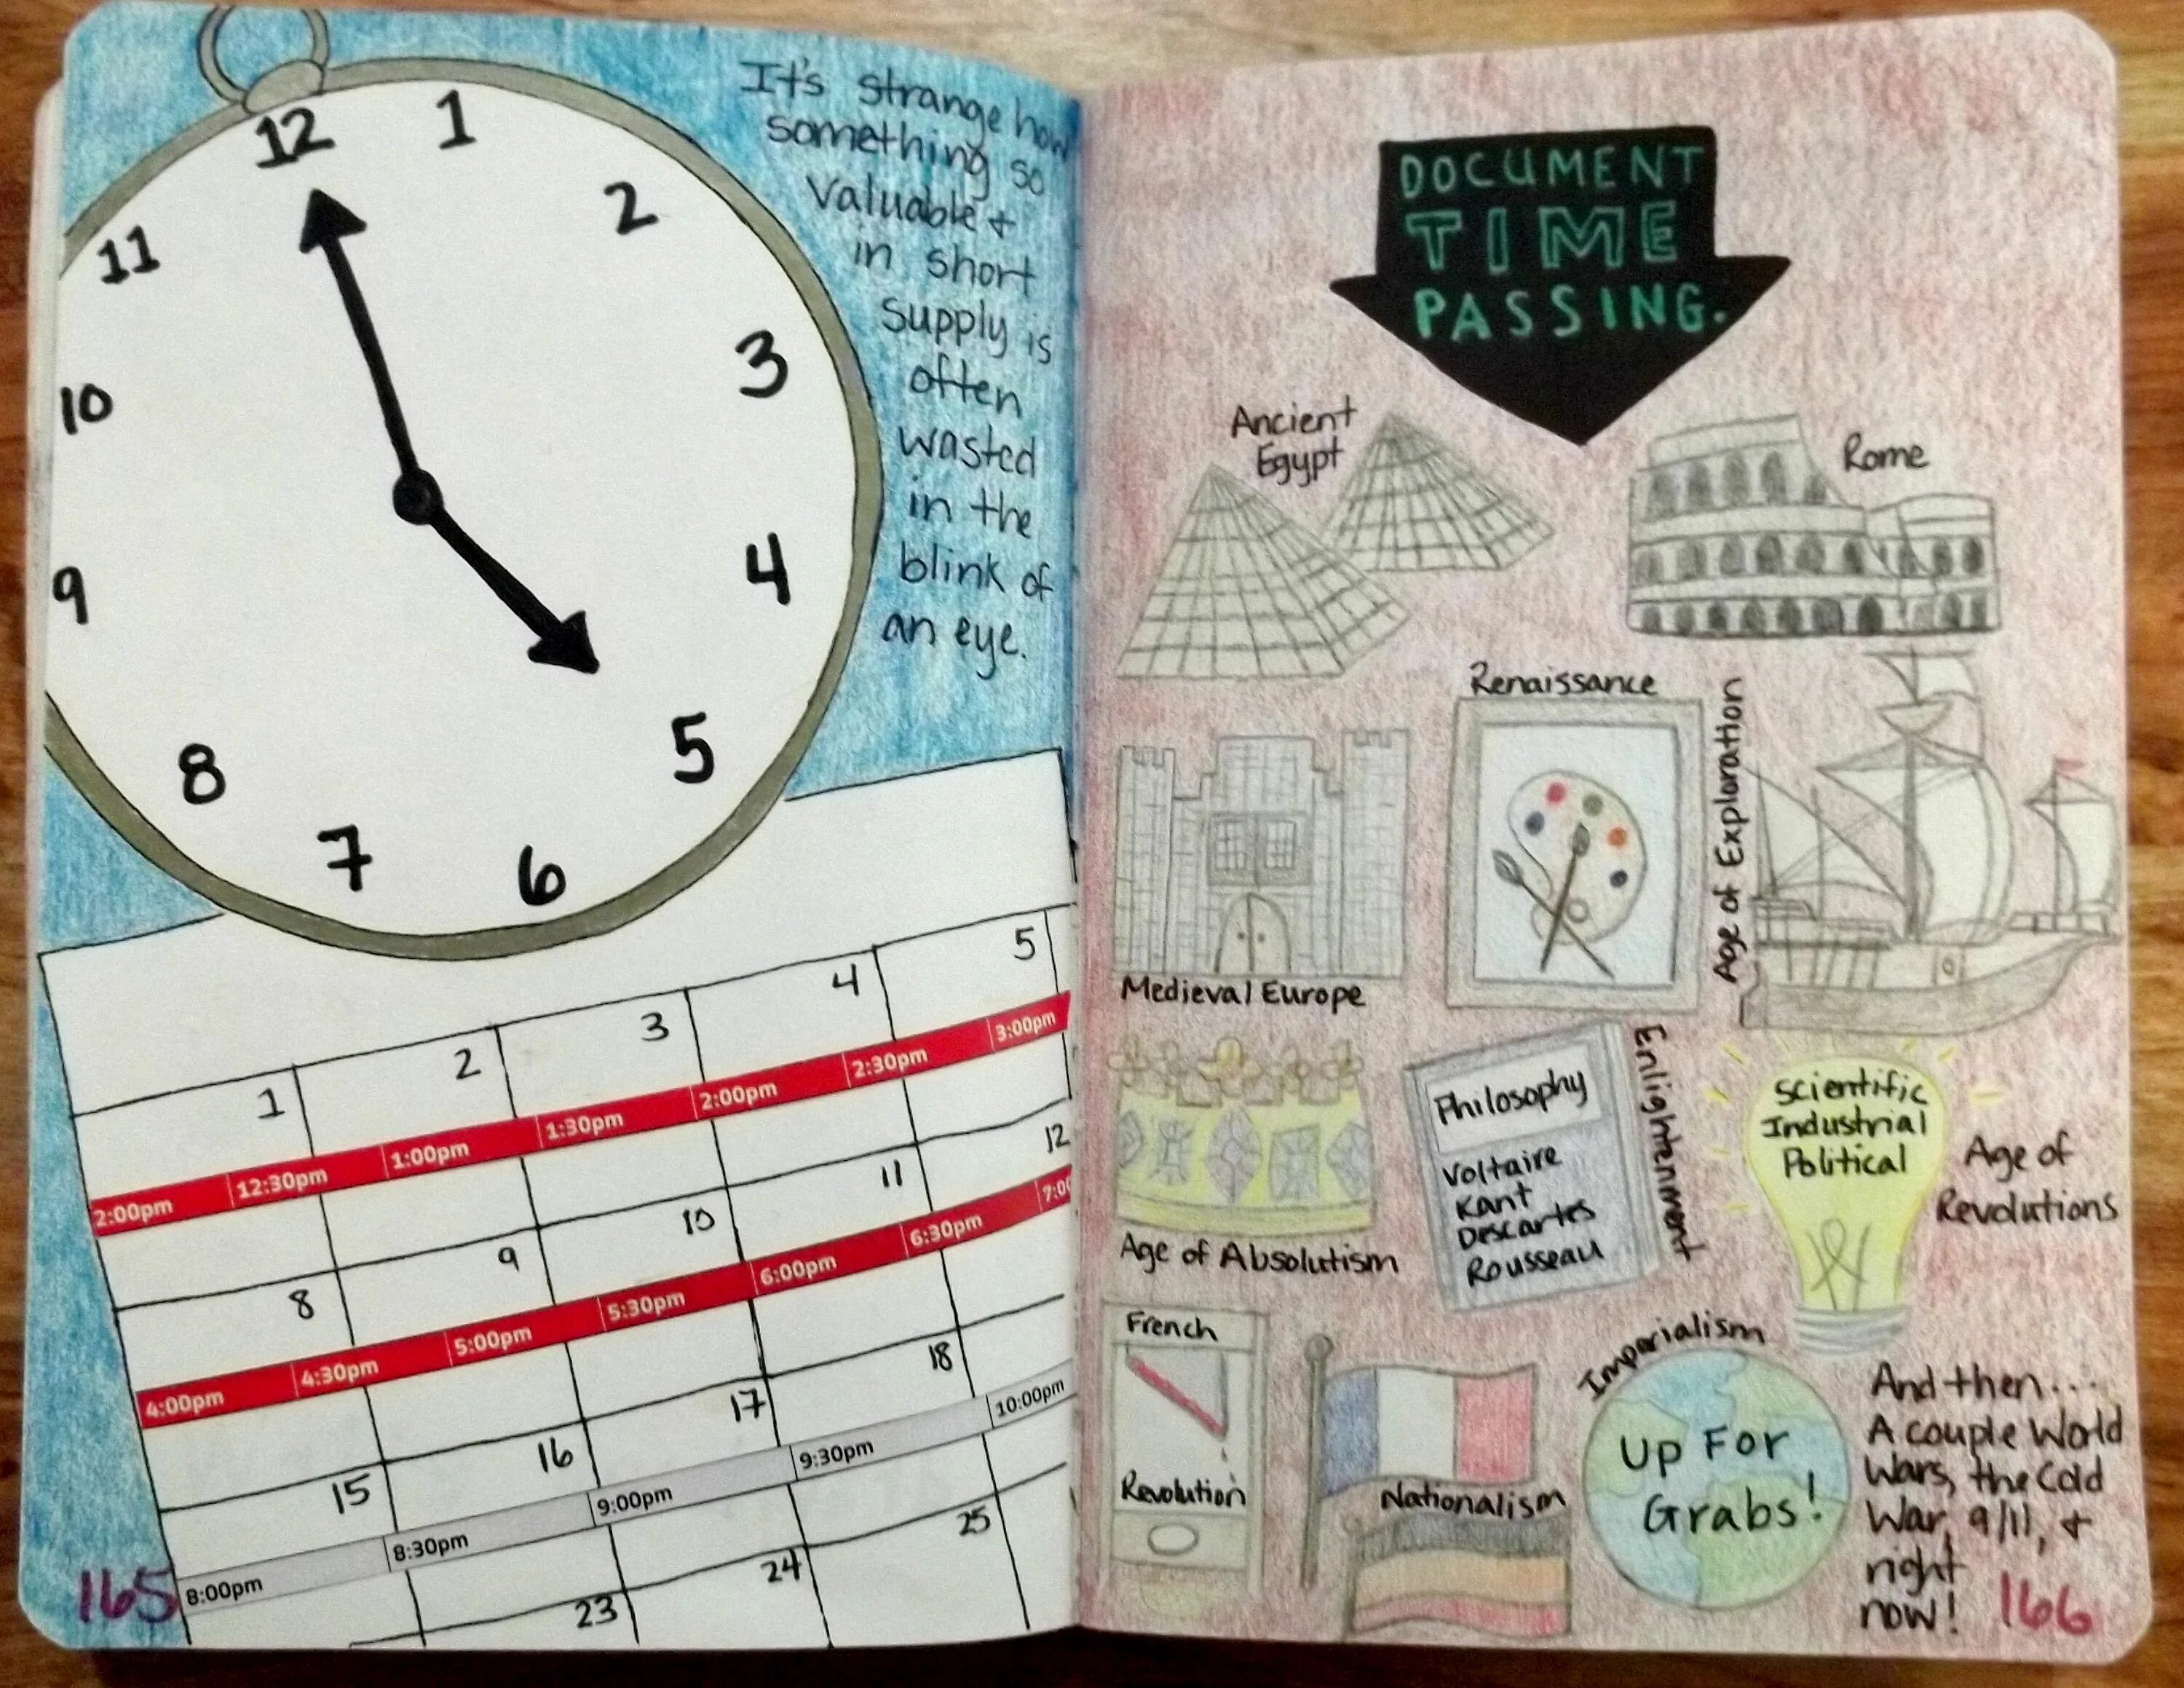 12
1
2
3
4
5
6
7
8
9
10
11
It's strange how
something so
valuable +
in short
supply is
often
wasted
in the
blink of
an eye.
1 2 3 4 5
2:00pm 12:30pm 1:00pm 1:30pm 2:00pm 2:30pm 3:00pm
8 9 10 11 12
4:00pm 4:30pm 5:00pm 5:30pm 6:00pm 6:30pm
15 16 17 18
8:00pm 8:30pm 9:00pm 9:30pm 10:00pm
23 24 25
165
DOCUMENT
TIME
PASSING.
Ancient
Egypt
Rome
Medieval Europe
Renaissance
Age of Exploration
Age of Absolutism
Philosophy
Voltaire
Kant
Descartes
Rousseau
Enlightenment
Scientific
Industrial
Political
Age of
Revolutions
French
Revolution
Nationalism
Imperialism
Up For
Grabs!
And then...
A couple World
Wars, the Cold
War, 9/11, +
right
now!
166